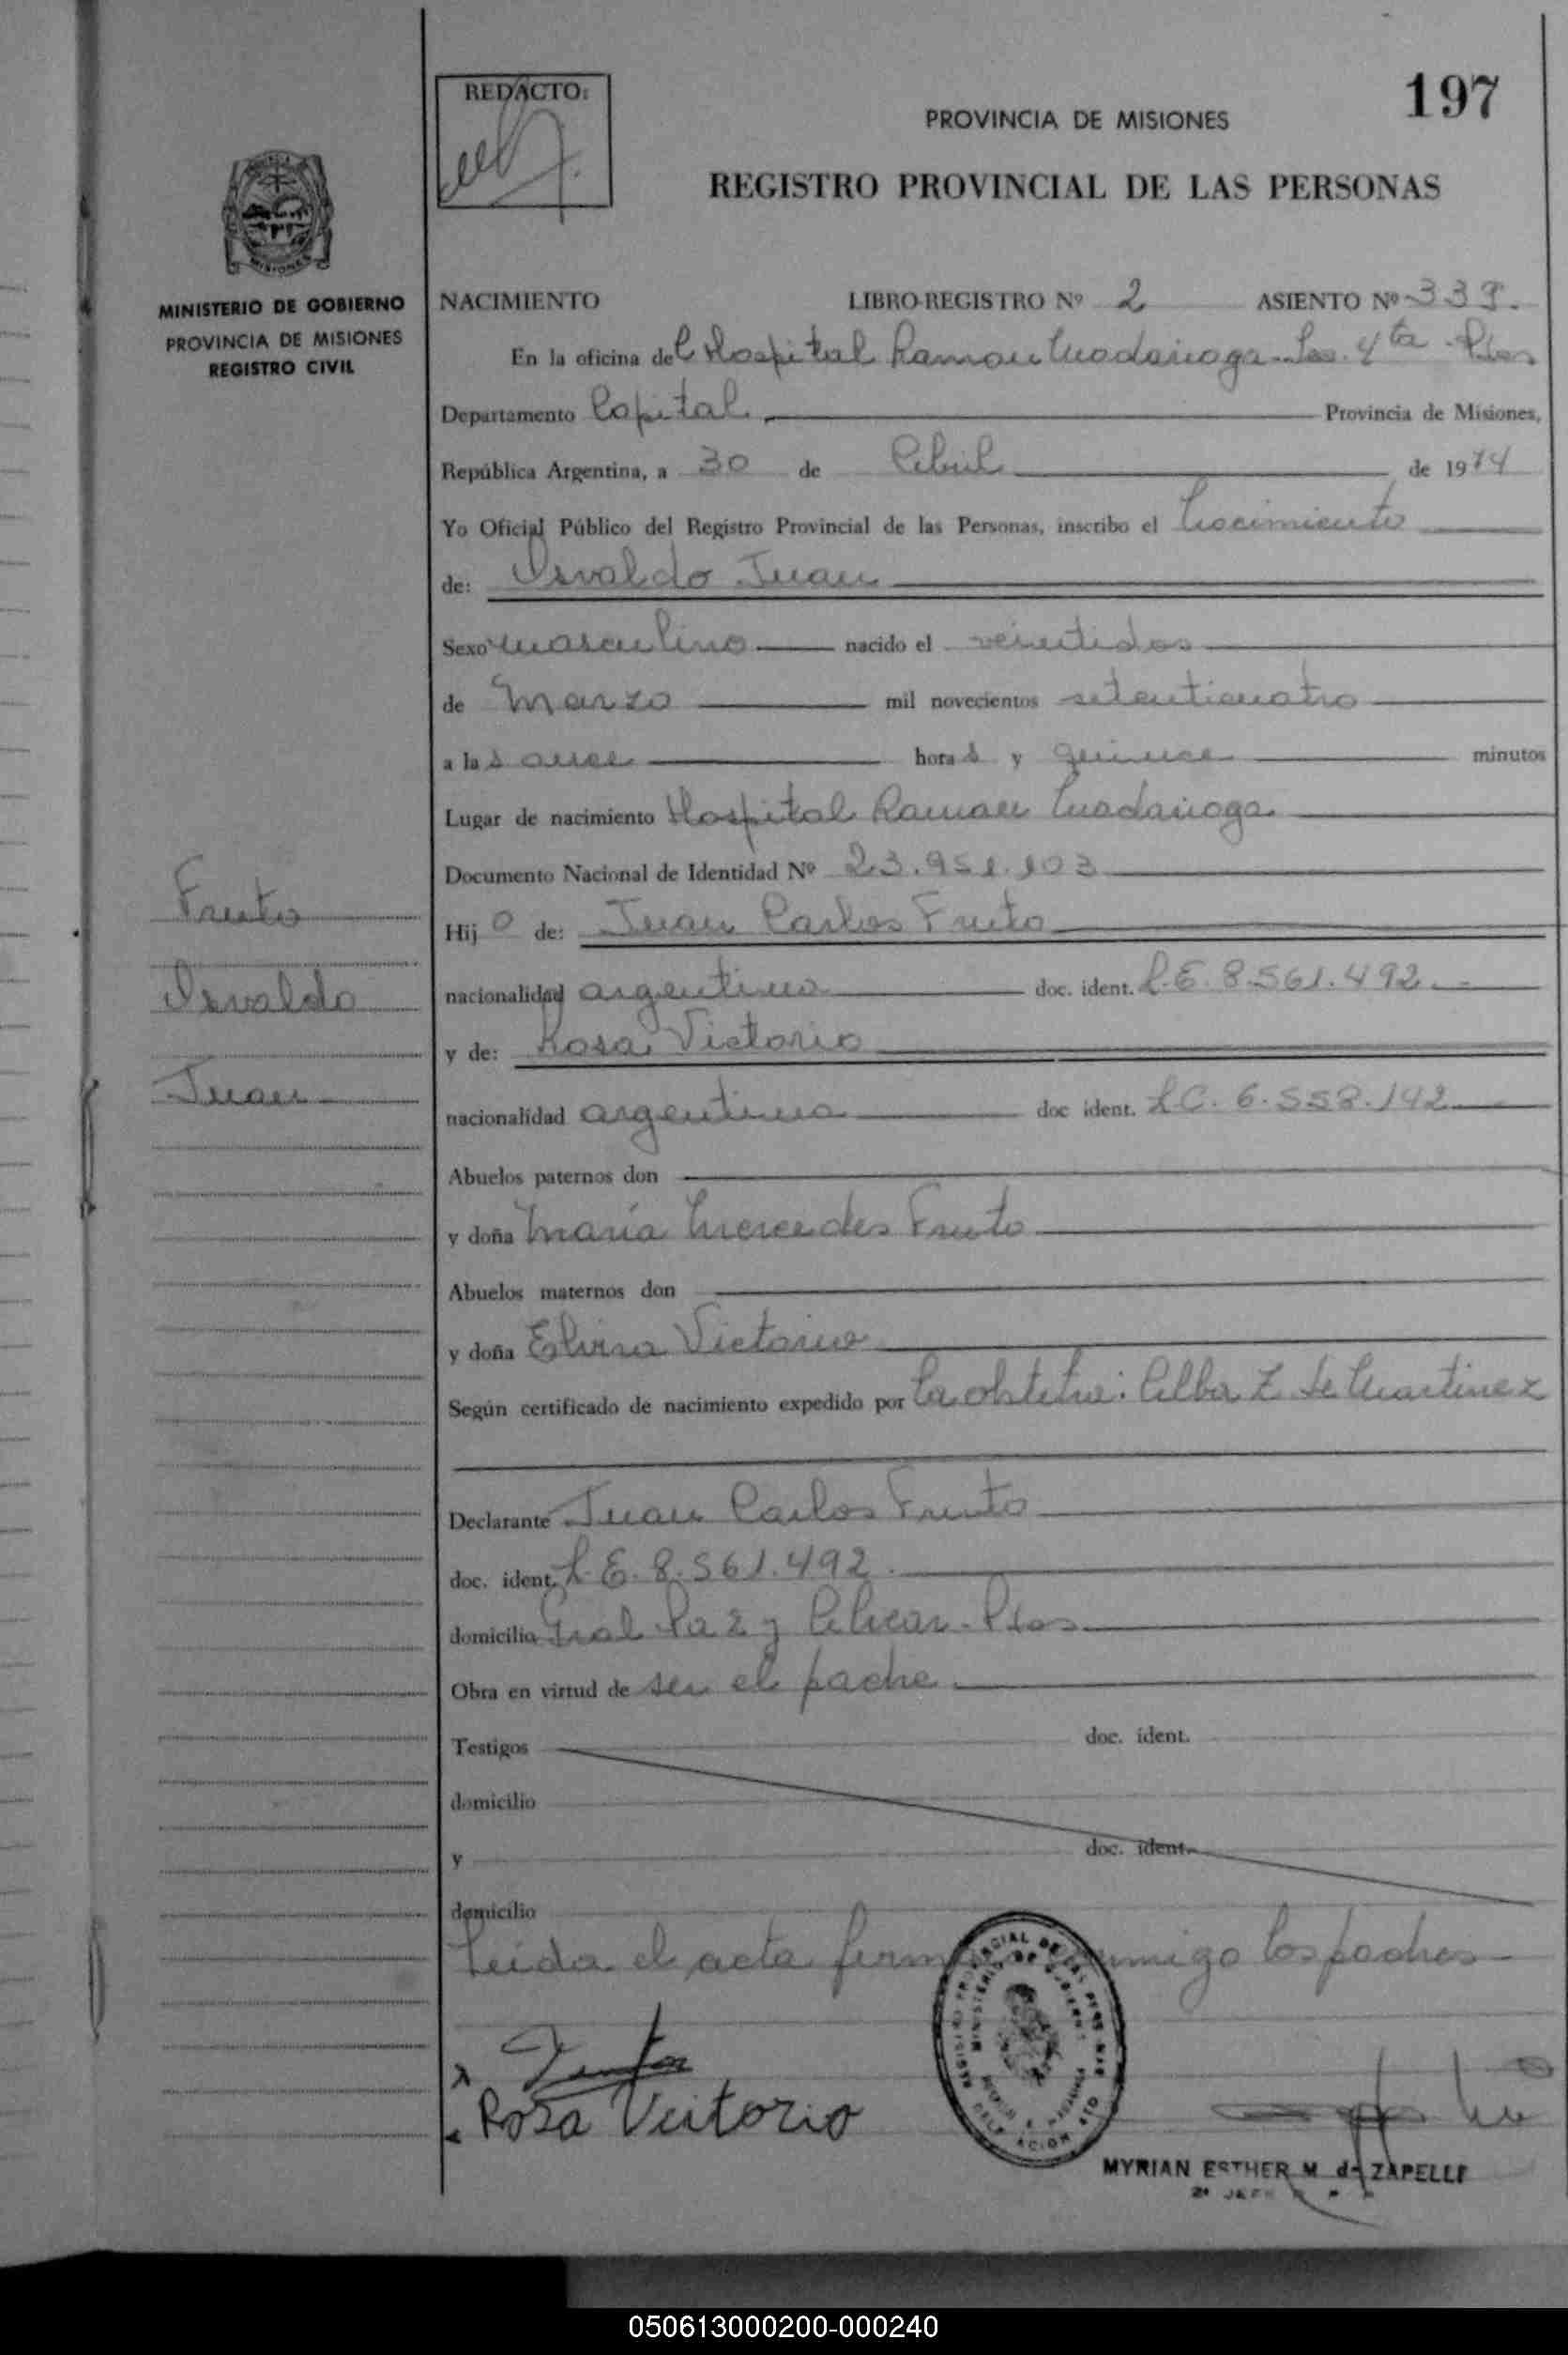 197
REDACTO:
PROVINCIA DE MISIONES
REGISTRO PROVINCIAL DE LAS PERSONAS
MINISTERIO DE GOBIERNO
PROVINCIA DE MISIONES
REGISTRO CIVIL
NACIMIENTO LIBRO-REGISTRO Nº 2 ASIENTO Nº 339.
En la oficina del Hospital Ramon Madariaga 4ta Pdas
Departamento Capital Provincia de Misiones,
República Argentina, a 30 de Abril de 1974
Yo Oficial Público del Registro Provincial de las Personas, inscribo el Nacimiento
de: Osvaldo Juan
Sexo masculino nacido el veintidos
de Marzo mil novecientos setenticuatro
a las once horas y quince minutos
Lugar de nacimiento Hospital Ramon Madariaga
Documento Nacional de Identidad Nº 23.951.103
Fruto
Osvaldo
Juan
Hijo de: Juan Carlos Fruto
nacionalidad argentino doc. ident. L.E. 8.561.492.-
y de: Rosa Victorio
nacionalidad argentina doc ident. L.C. 6.558.142
Abuelos paternos don
y doña María Mercedes Fruto
Abuelos maternos don
y doña Elvira Victorio
Según certificado de nacimiento expedido por La obstetra: Alba Z de Martinez
Declarante Juan Carlos Fruto
doc. ident. L.E. 8.561.492.
domicilio Gral Paz y Alvear - Pdas
Obra en virtud de ser el padre
Testigos doc. ident.
domicilio
y doc. ident.
domicilio
Leida el acta firman conmigo los padres
Rosa Victorio
MYRIAN ESTHER M de ZAPELLI
050613000200-000240